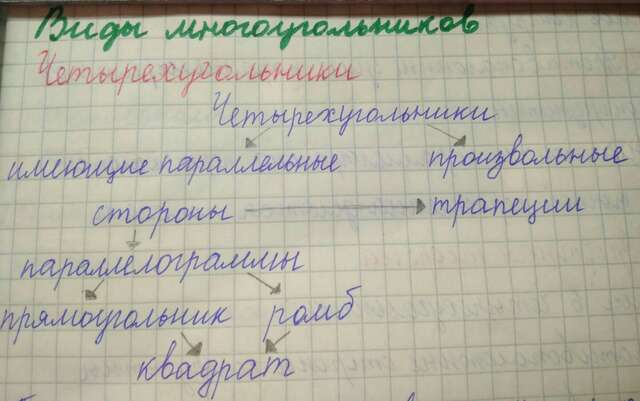 Виды многоугольников
Четырехугольники
Четырехугольники
имеющие параллельные произвольные
стороны трапеции
параллелограммы
прямоугольник ромб
квадрат